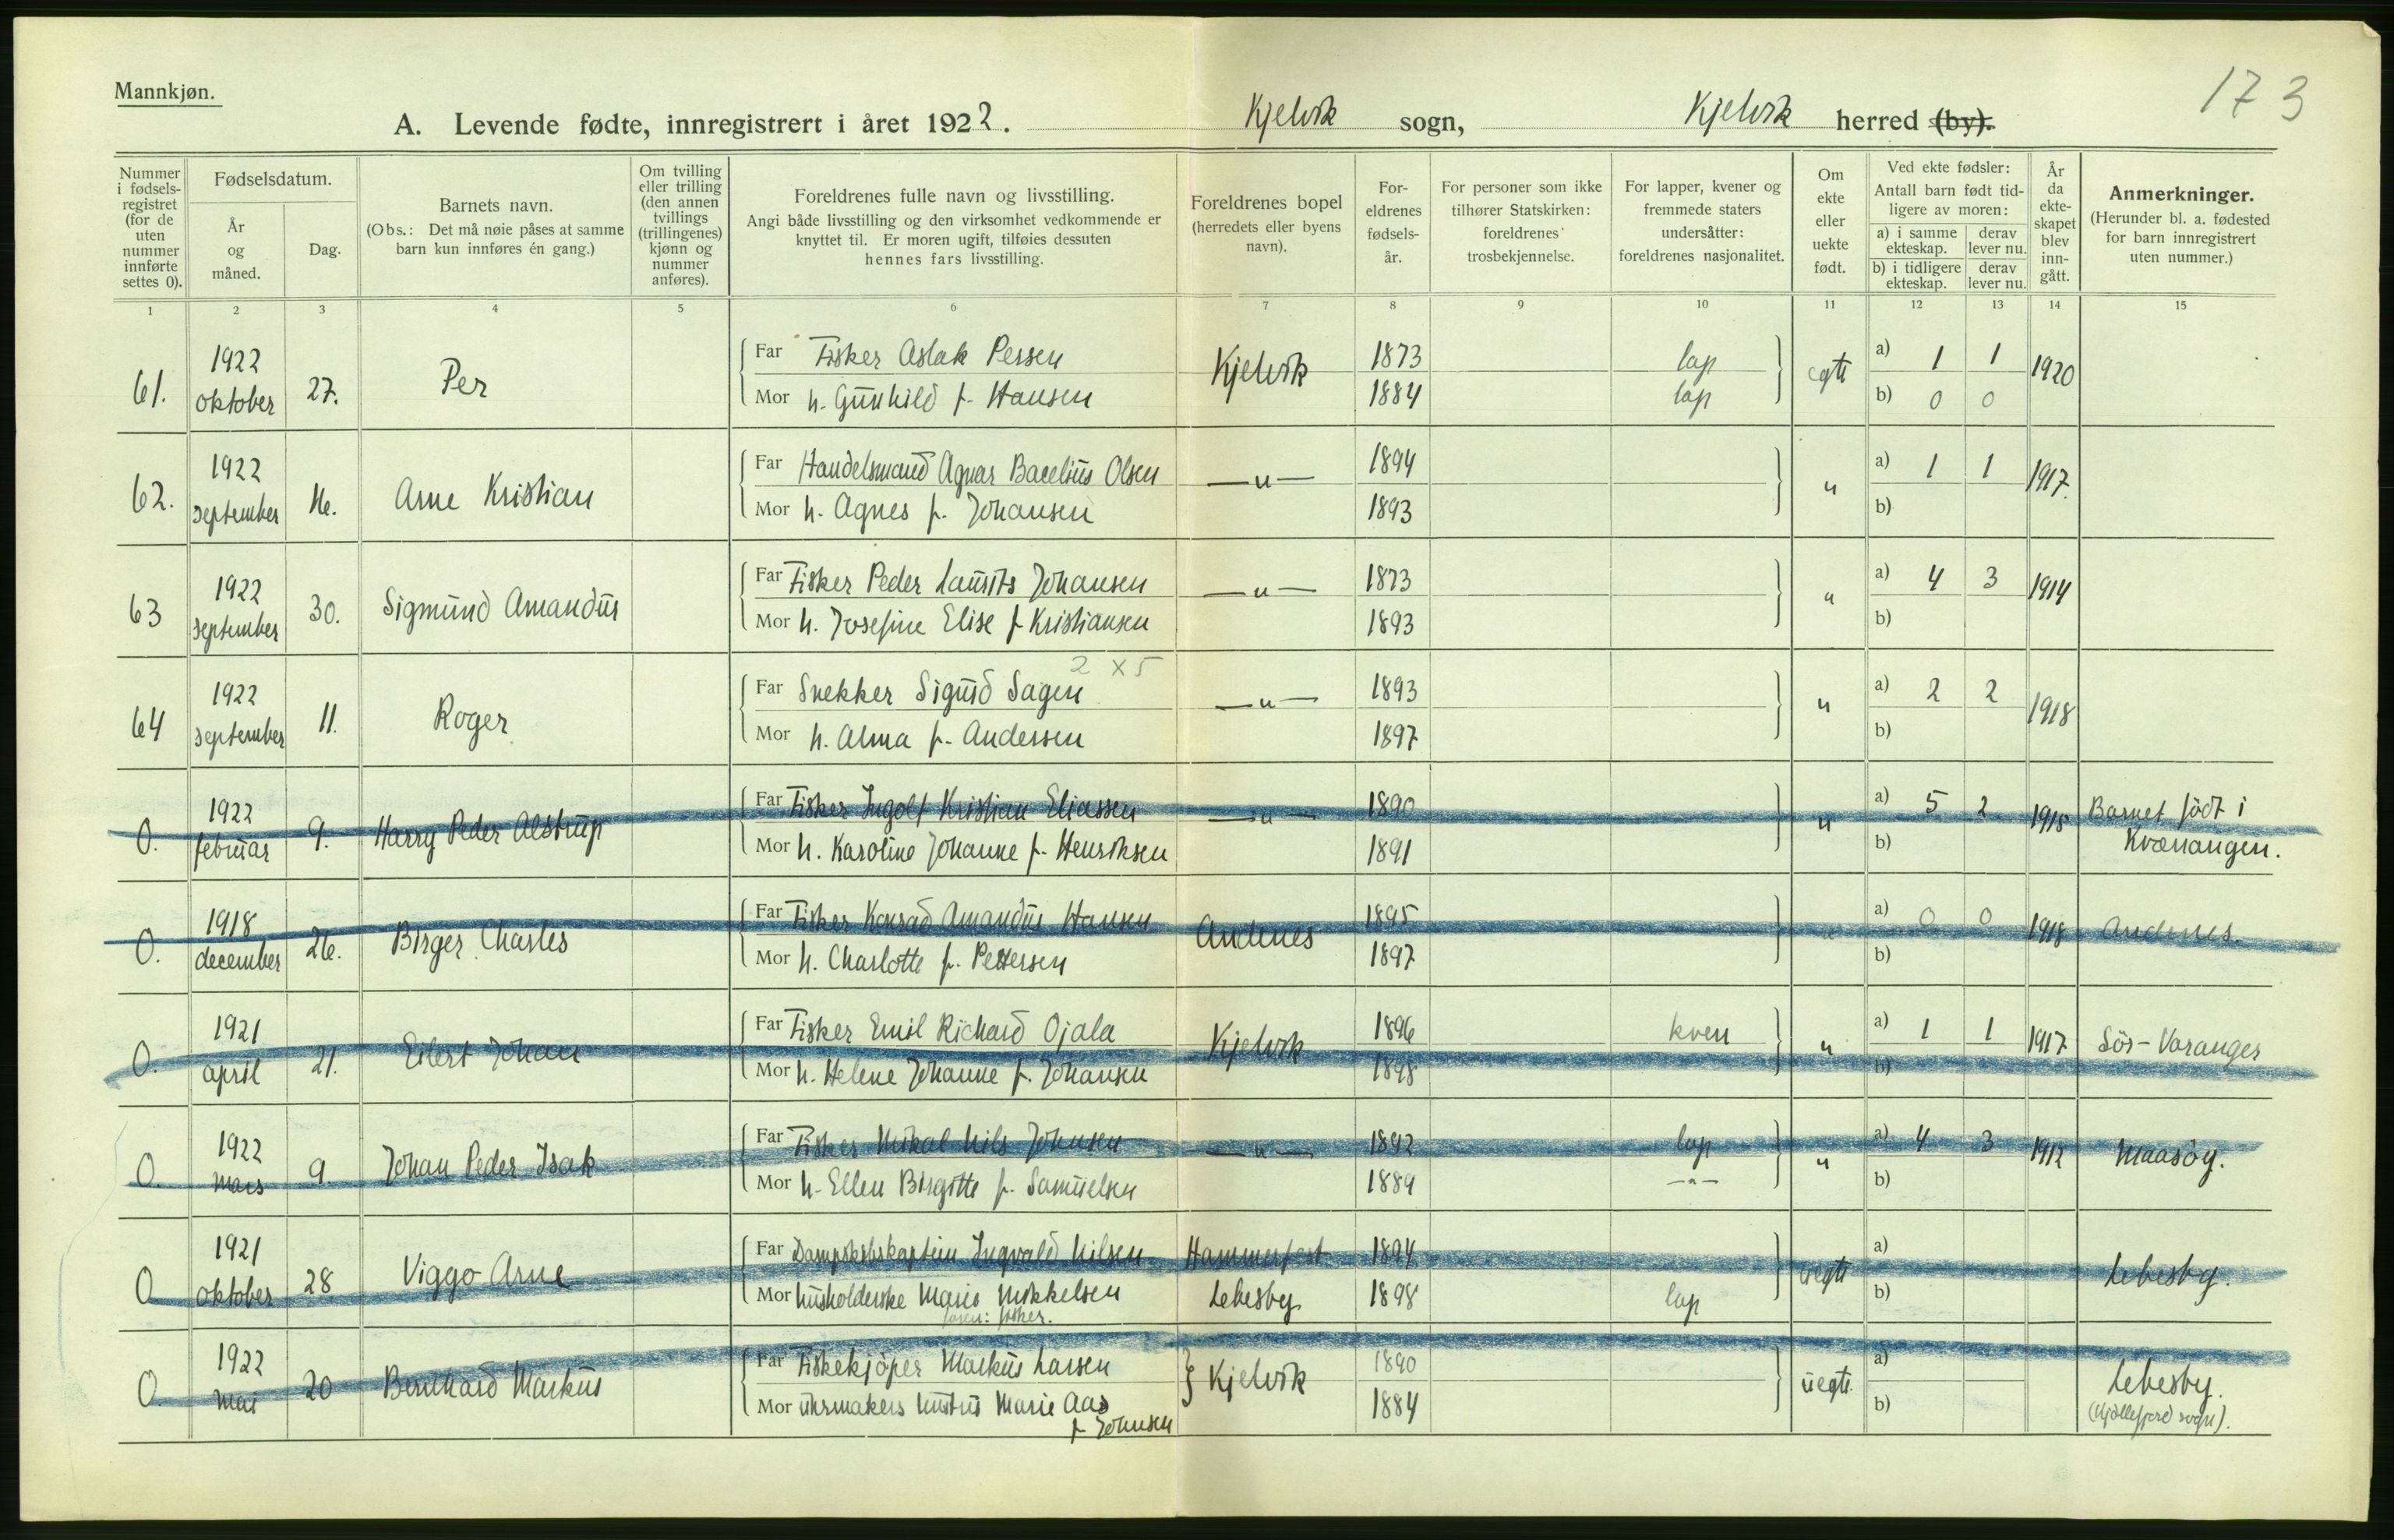 173
Mannkjøn.
A. Levende fødte, innregistrert i året 1922. Kjelvik sogn, Kjelvik herred (by).
Nummer i fødselsregistret (for de uten nummer innførte settes 0).
Fødselsdatum.
År og måned.
Dag.
Barnets navn.
(Obs.: Det må nøie påses at samme barn kun innføres én gang.)
Om tvilling eller trilling (den annen tvillings (trillingenes) kjønn og nummer anføres).
Foreldrenes fulle navn og livsstilling.
Angi både livsstilling og den virksomhet vedkommende er knyttet til. Er moren ugift, tilføies dessuten hennes fars livsstilling.
Foreldrenes bopel (herredets eller byens navn).
Foreldrenes fødselsår.
For personer som ikke tilhører Statskirken: foreldrenes trosbekjennelse.
For lapper, kvener og fremmede staters undersåtter: foreldrenes nasjonalitet.
Om ekte eller uekte født.
Ved ekte fødsler:
Antall barn født tidligere av moren:
a) i samme ekteskap. derav lever nu.
b) i tidligere ekteskap. derav lever nu.
År da ekteskapet blev inngått.
Anmerkninger.
(Herunder bl. a. fødested for barn innregistrert uten nummer.)
1 2 3 4 5 6 7 8 9 10 11 12 13 14 15
61. 1922 oktober 27. Per
Far Fisker Aslak Persen Kjelvik 1873 lap egte a) 1 1 1920
Mor h. Gunhild f. Hansen 1884 lap b) 0 0
62. 1922 september 16. Arne Kristian
Far Handelsmand Agnar Bacelius Olsen —„— 1894 „ a) 1 1 1917.
Mor h. Agnes f. Johansen 1893 b)
63 1922 september 30. Sigmund Amandus
Far Fisker Peder Laurits Johansen —„— 1873 „ a) 4 3 1914
Mor h. Josefine Elise f Kristiansen 1893 b)
2 x 5
64 1922 september 11. Roger
Far Snekker Sigurd Sagen —„— 1893 „ a) 2 2 1918
Mor h. Alma f. Andersen 1897 b)
0. 1922 februar 9. Harry Peder Alstrup
Far Fisker Ingolf Kristian Eliassen —„— 1890 „ a) 5 2 1915 Barnet født i
Mor h. Karoline Johanne f. Henriksen 1891 b) Kvænangen.
0. 1918 december 26. Birger Charles
Far Fisker Konrad Amandus Hansen Andenes 1895 „ a) 0 0 1918 Andenes.
Mor h. Charlotte f. Pettersen 1897 b)
0. 1921 april 21. Eilert Johan
Far Fisker Emil Richard Ojala Kjelvik 1896 kven „ a) 1 1 1917 Sör-Varanger
Mor h. Helene Johanne f. Johansen 1898 b)
0. 1922 mars 9. Johan Peder Isak
Far Fisker Mikal Nils Johnsen —„— 1892 lap „ a) 4 3 1912 Maasöy.
Mor h. Ellen Birgitte f. Samuelsen 1889 —„— b)
0 1921 oktober 28 Viggo Arne
Far Dampskibskaptein Ingvald Nilsen Hammerfest 1894 uegte a) Lebesby.
Mor husholderske Marie Mikkelsen Lebesby 1898 lap b)
faren: fisker.
0. 1922 mai 20 Bernhard Markus
Far Fiskekjöper Markus Larsen Kjelvik 1890 uegte. a) Lebesby.
Mor uhrmakers hustru Marie Aas 1884 b) (Kjöllefjord sogn).
f Johnsen